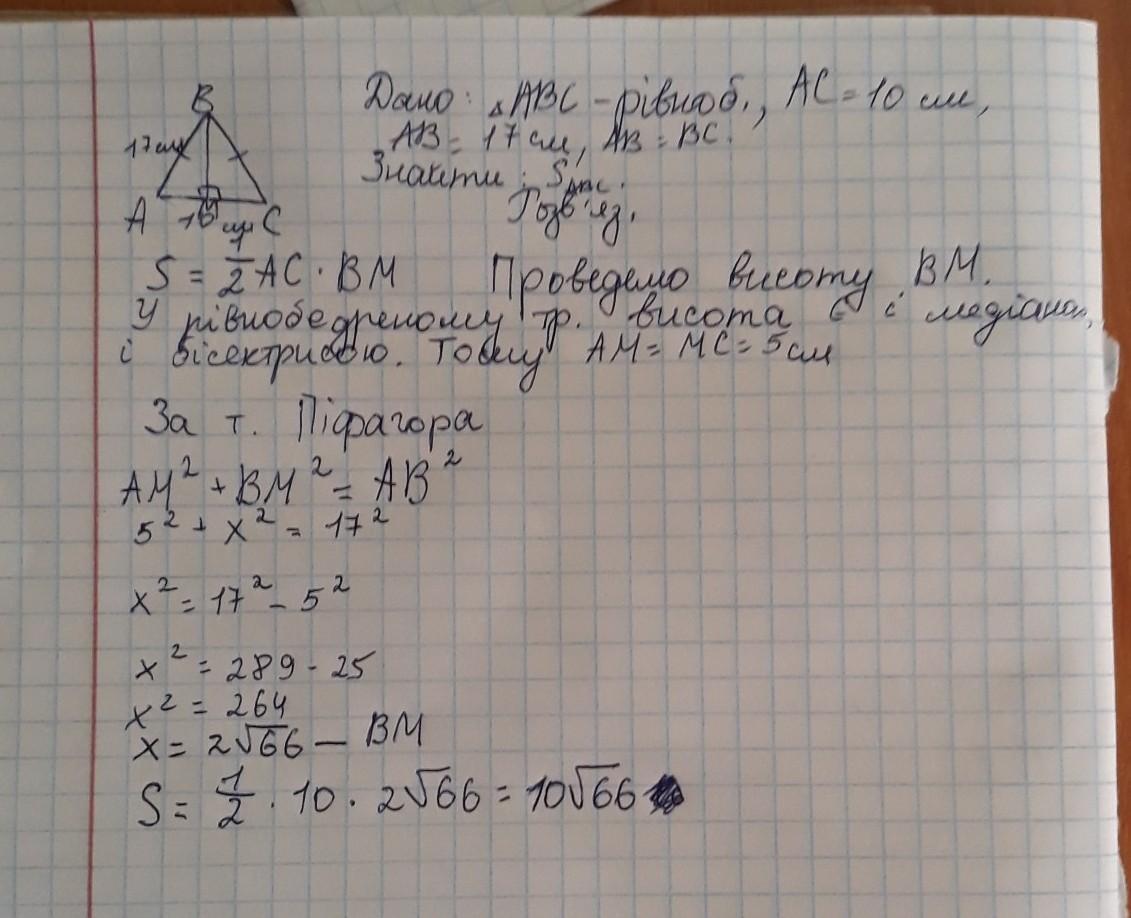 B
17см
A 10 см C
Дано: △ABC - рівноб., AC = 10 см,
AB = 17 см, AB = BC.
Знайти: S ABC.
Розв'яз.
S = 1/2 AC · BM Проведемо висоту BM.
У рівнобедреному тр. висота є і медіаною,
і бісектрисою. Тому AM = MC = 5 см
За т. Піфагора
AM² + BM² = AB²
5² + x² = 17²
x² = 17² - 5²
x² = 289 - 25
x² = 264
x = 2√66 — BM
S = 1/2 · 10 · 2√66 = 10√66